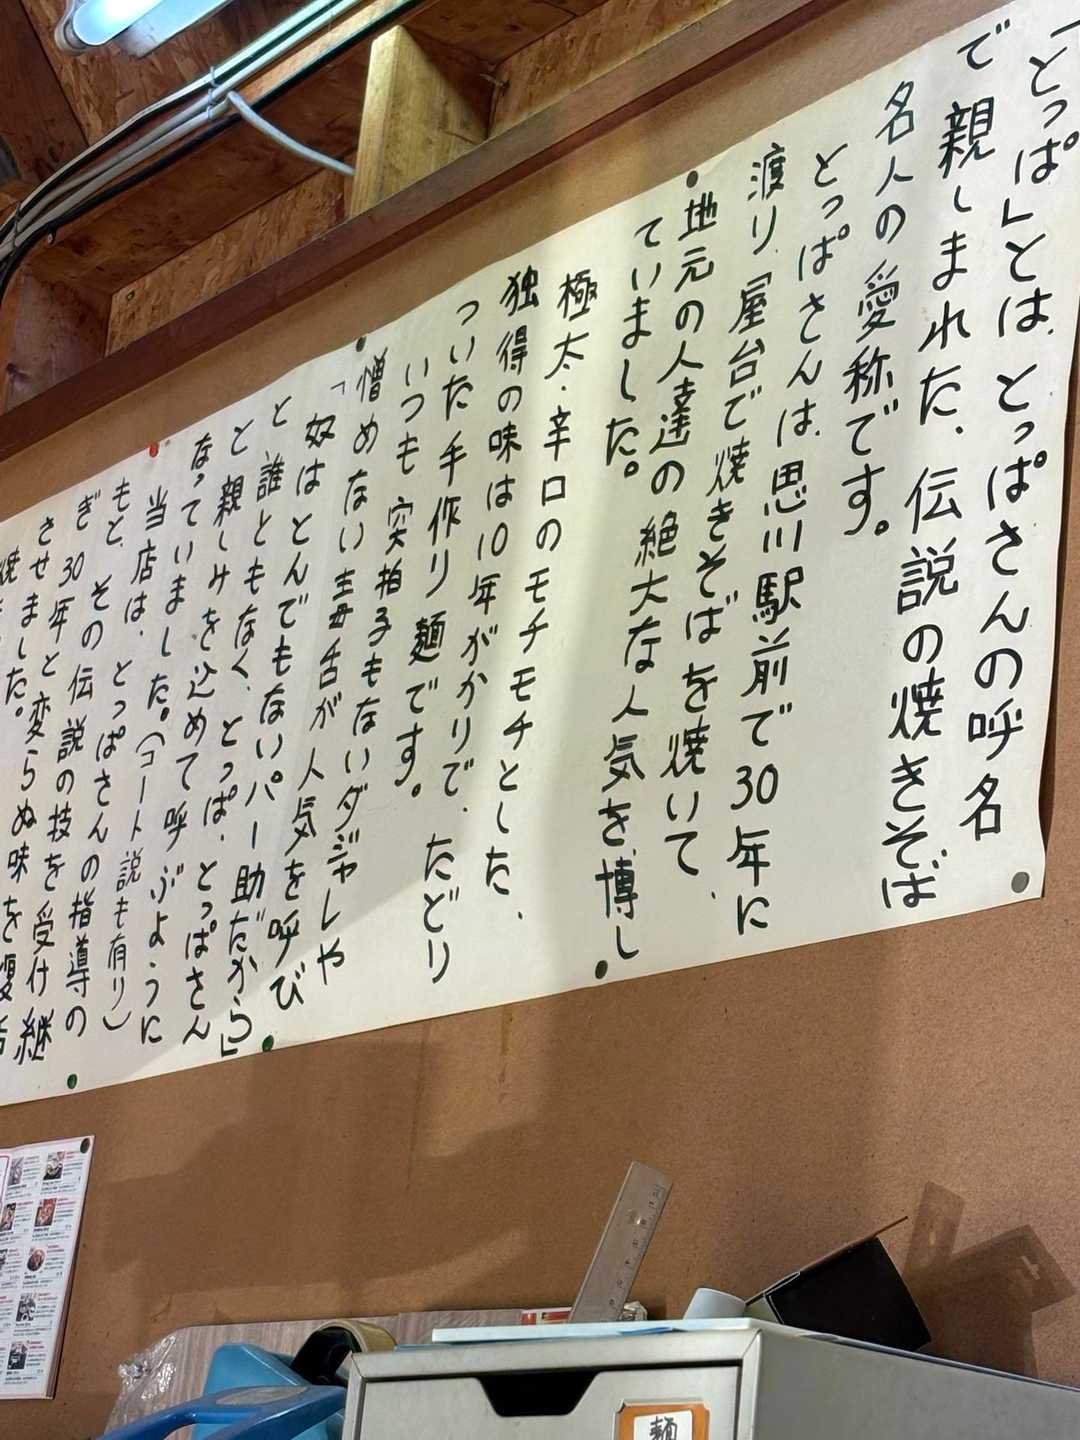 「とっぱ」とは、とっぱさんの呼名
で親しまれた、伝説の焼きそば
名人の愛称です。
とっぱさんは、思川駅前で30年に
渡り、屋台で焼きそばを焼いて、
地元の人達の絶大な人気を博し
ていました。
極太・辛口のモチモチとした、
独得の味は10年がかりで、たどり
ついた手作り麺です。
いつも突拍子もないダジャレや
憎めない毒舌が人気を呼び
「奴はとんでもないパー助だから」
と誰ともなく、とっぱ、とっぱさん
と親しみを込めて呼ぶように
なっていました。(コート説も有り)
当店は、とっぱさんの指導の
もと、その伝説の技を受け継
ぎ30年と変らぬ味を復活
させました。
麺